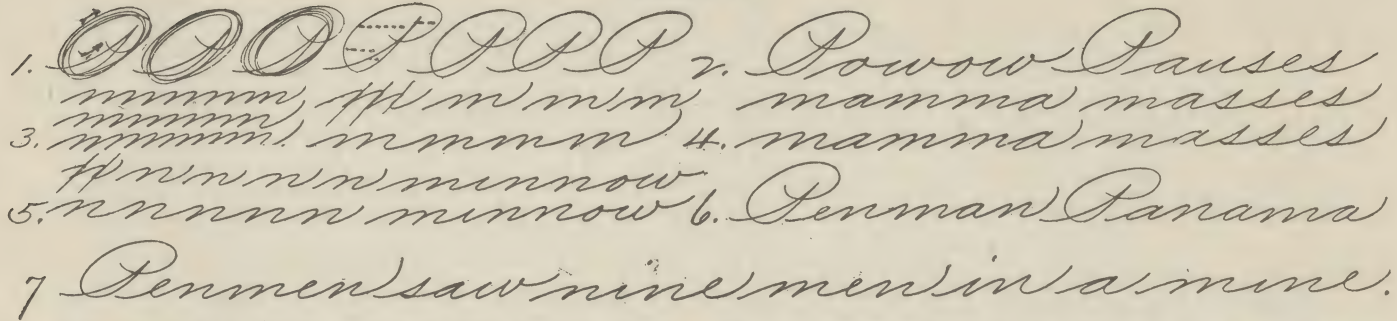 1. P P P P P P P 2. Powow Pauses
mmmmm m m m m mamma masses
mmmmm
3. mmmmm mmmmm 4. mamma masses
n n n n n minnow
5. nnnnnn minnow 6. Penman Panama
7 Penmen saw nine men in a mine.